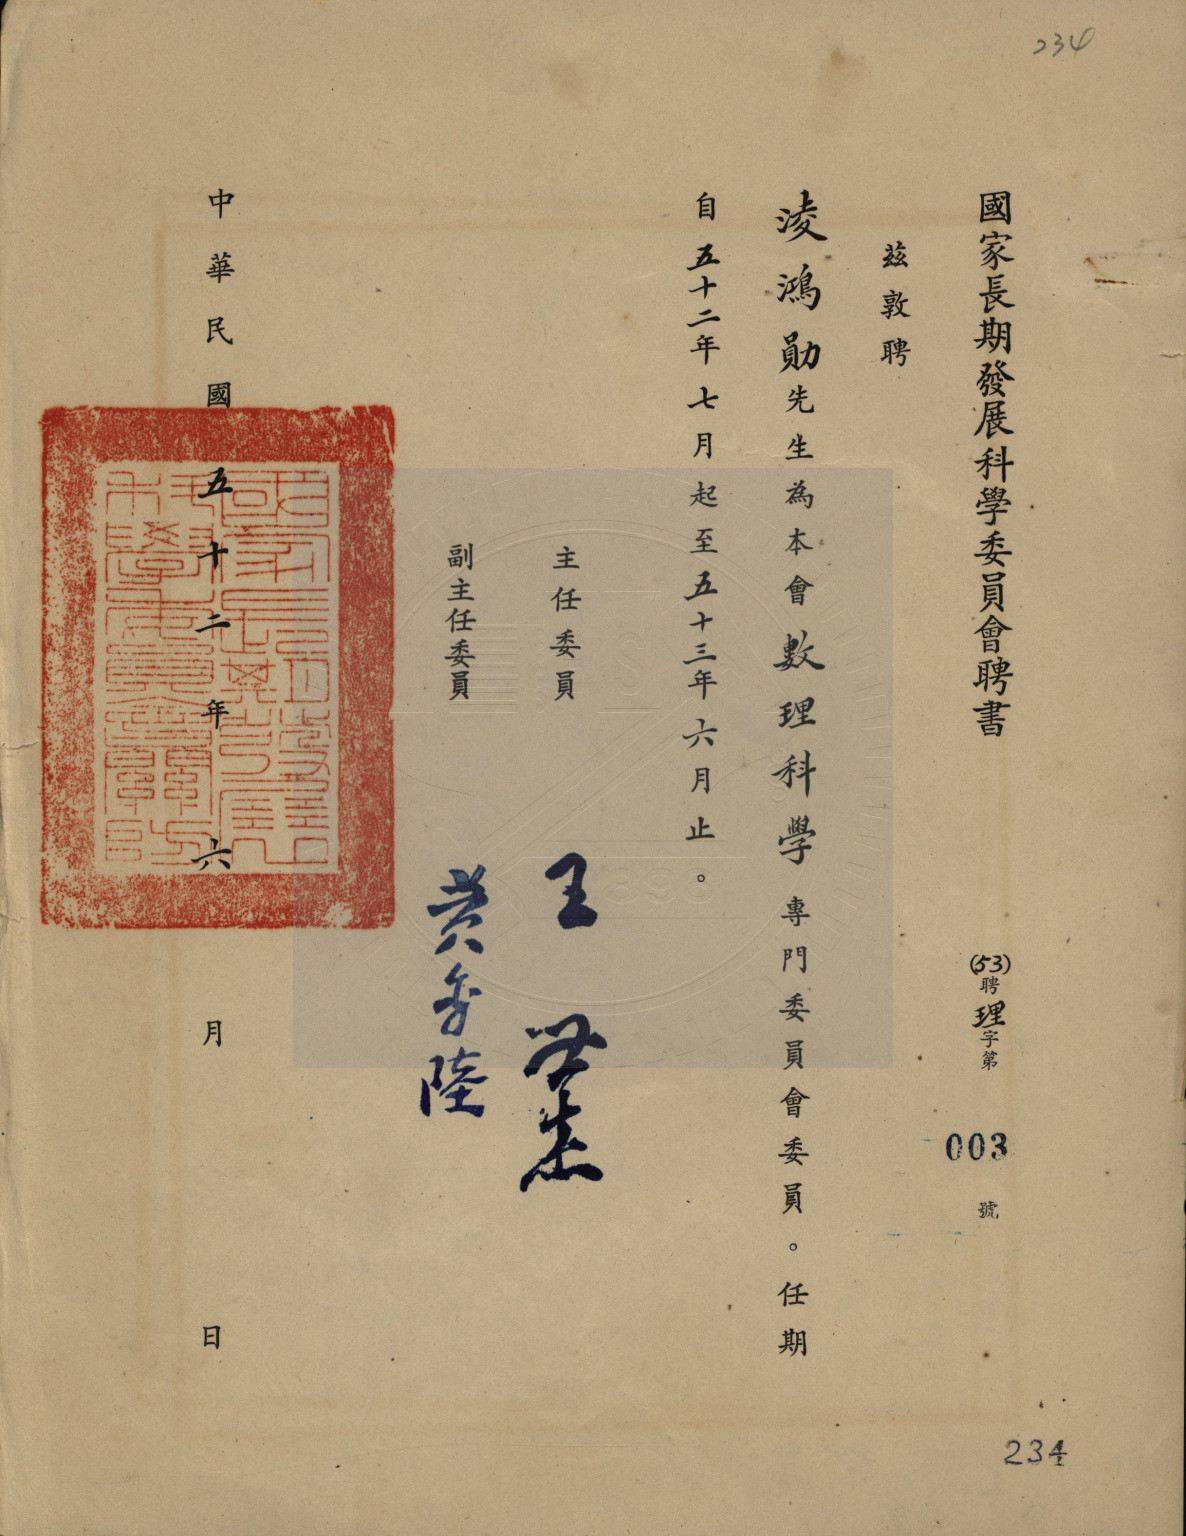 234
國家長期發展科學委員會聘書
(53)聘理字第 003 號
茲敦聘
淩鴻勛先生為本會數理科學專門委員會委員。任期
自五十二年七月起至五十三年六月止。
主任委員 王世杰
副主任委員 黃季陸
中華民國五十二年六月 日
國家長期發展科學委員會關防
234